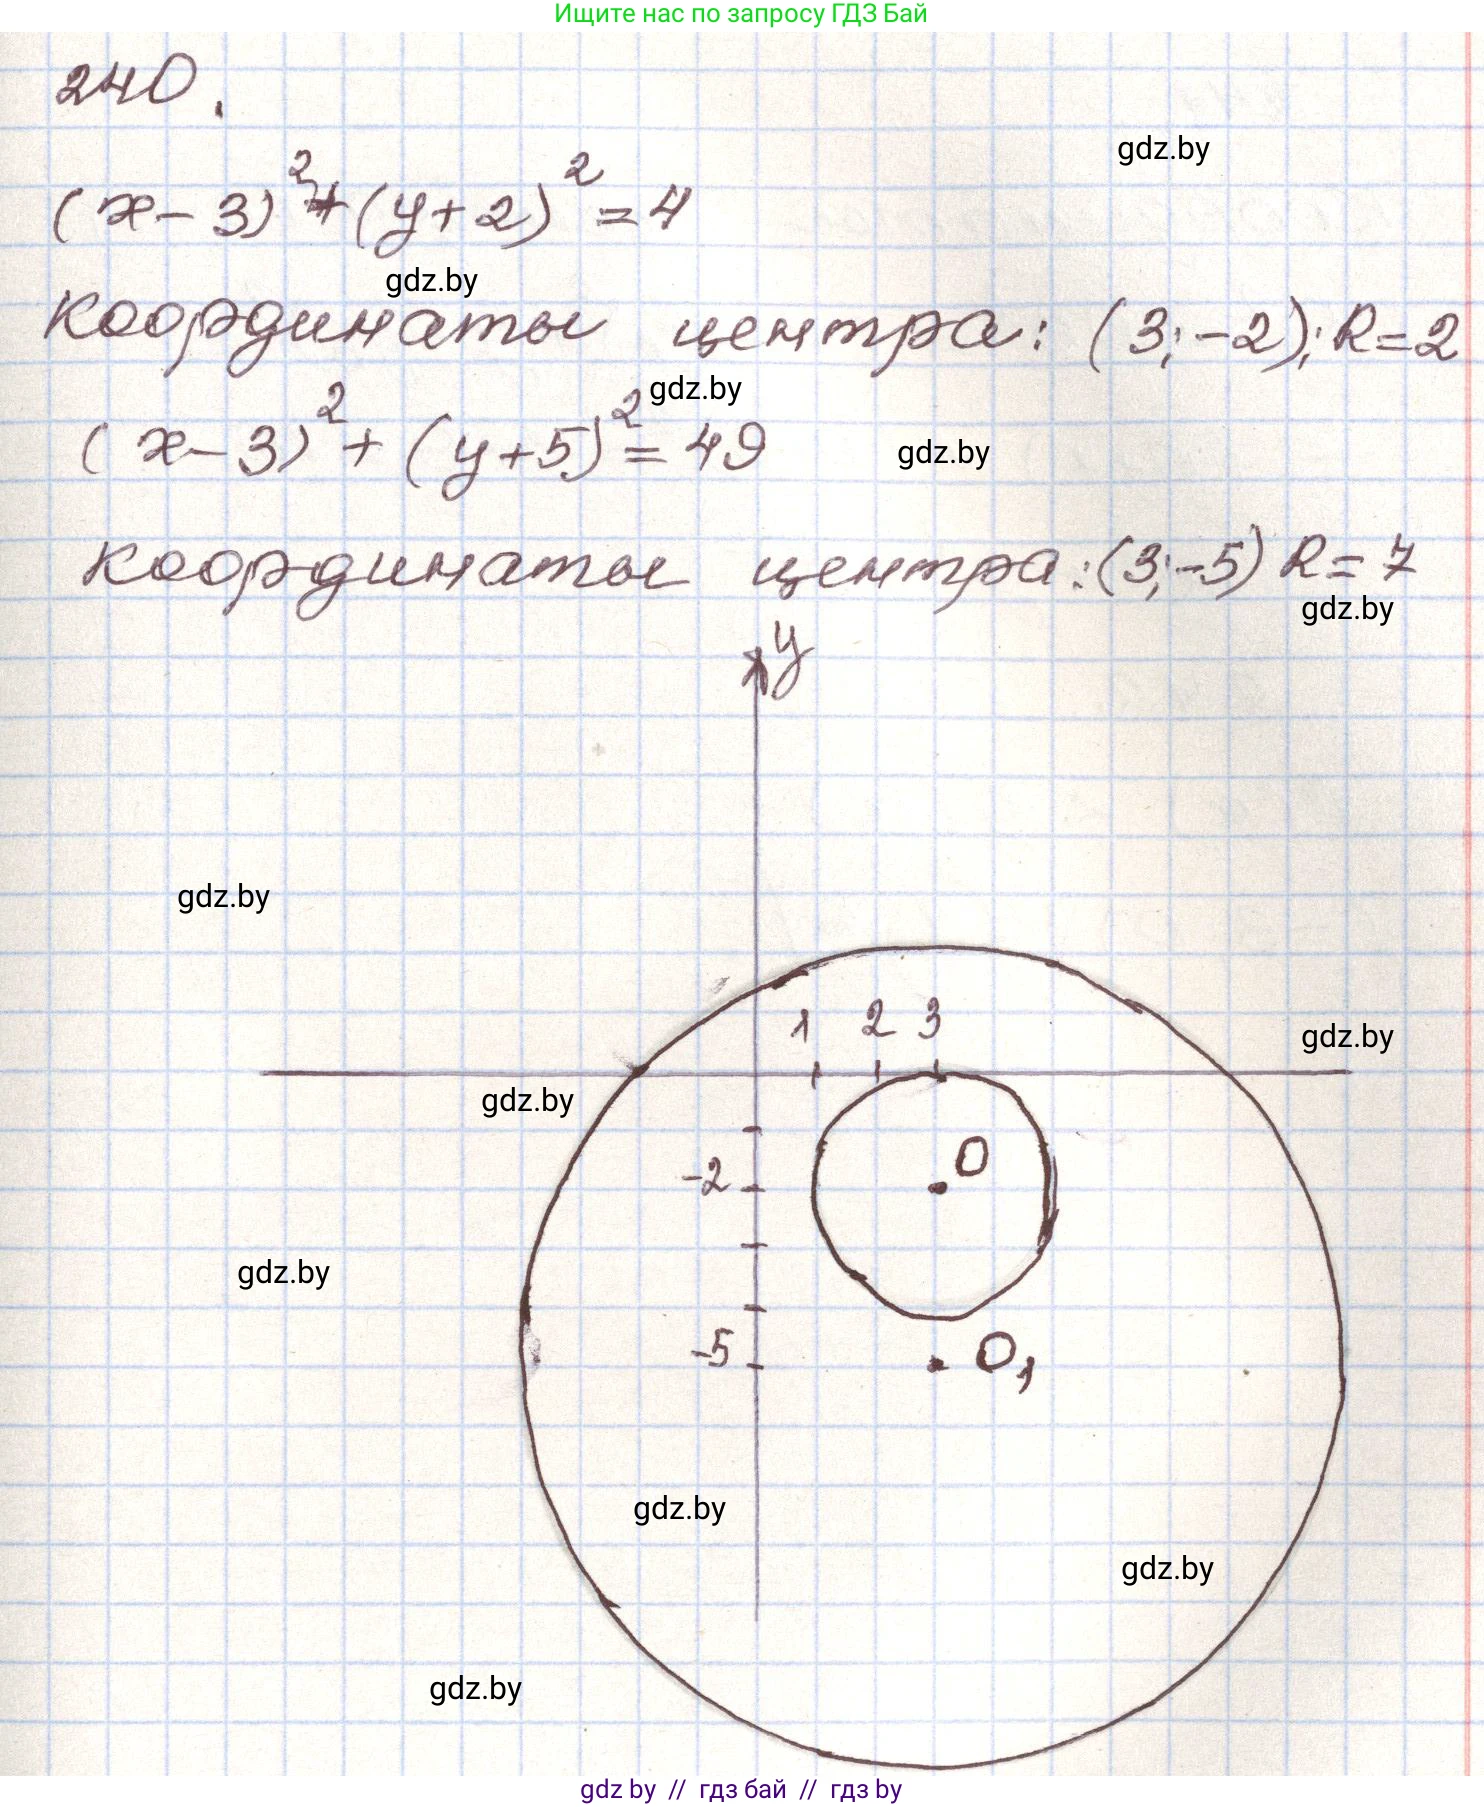 Ищите нас по запросу ГДЗ Бай
240.
gdz.by
(x-3)²+(y+2)²=4
gdz.by
координаты центра: (3;-2); R=2
gdz.by
(x-3)²+(y+5)²=49
gdz.by
координаты центра:(3;-5) R=7
gdz.by
y
gdz.by
1 2 3
gdz.by
gdz.by
O
-2
gdz.by
-5
O₁
gdz.by
gdz.by
gdz.by
gdz by // гдз бай // гдз by